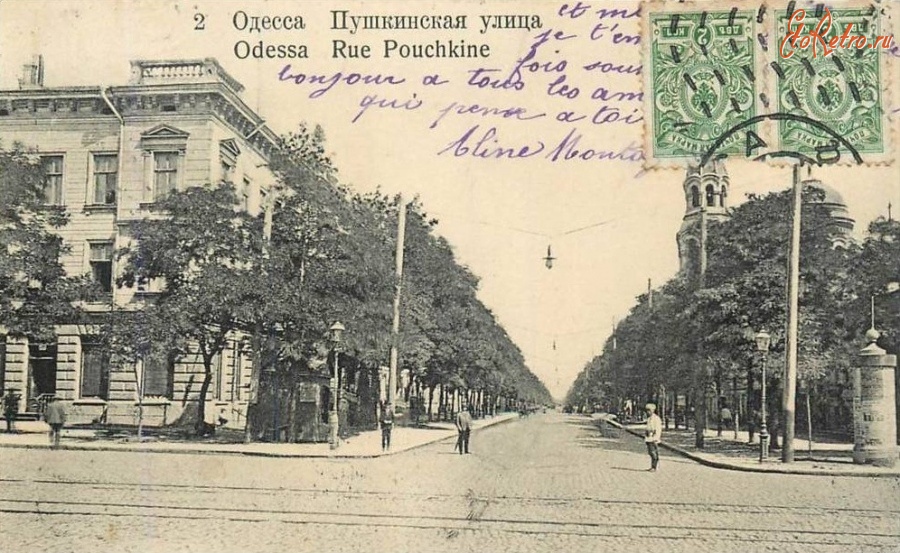 2 Одесса Пушкинская улица
Odessa Rue Pouchkine
et me
je t'en
fois sou
bonjour a tous les am
qui pense a toi
Aline
2 КОП
EtoRetro.ru